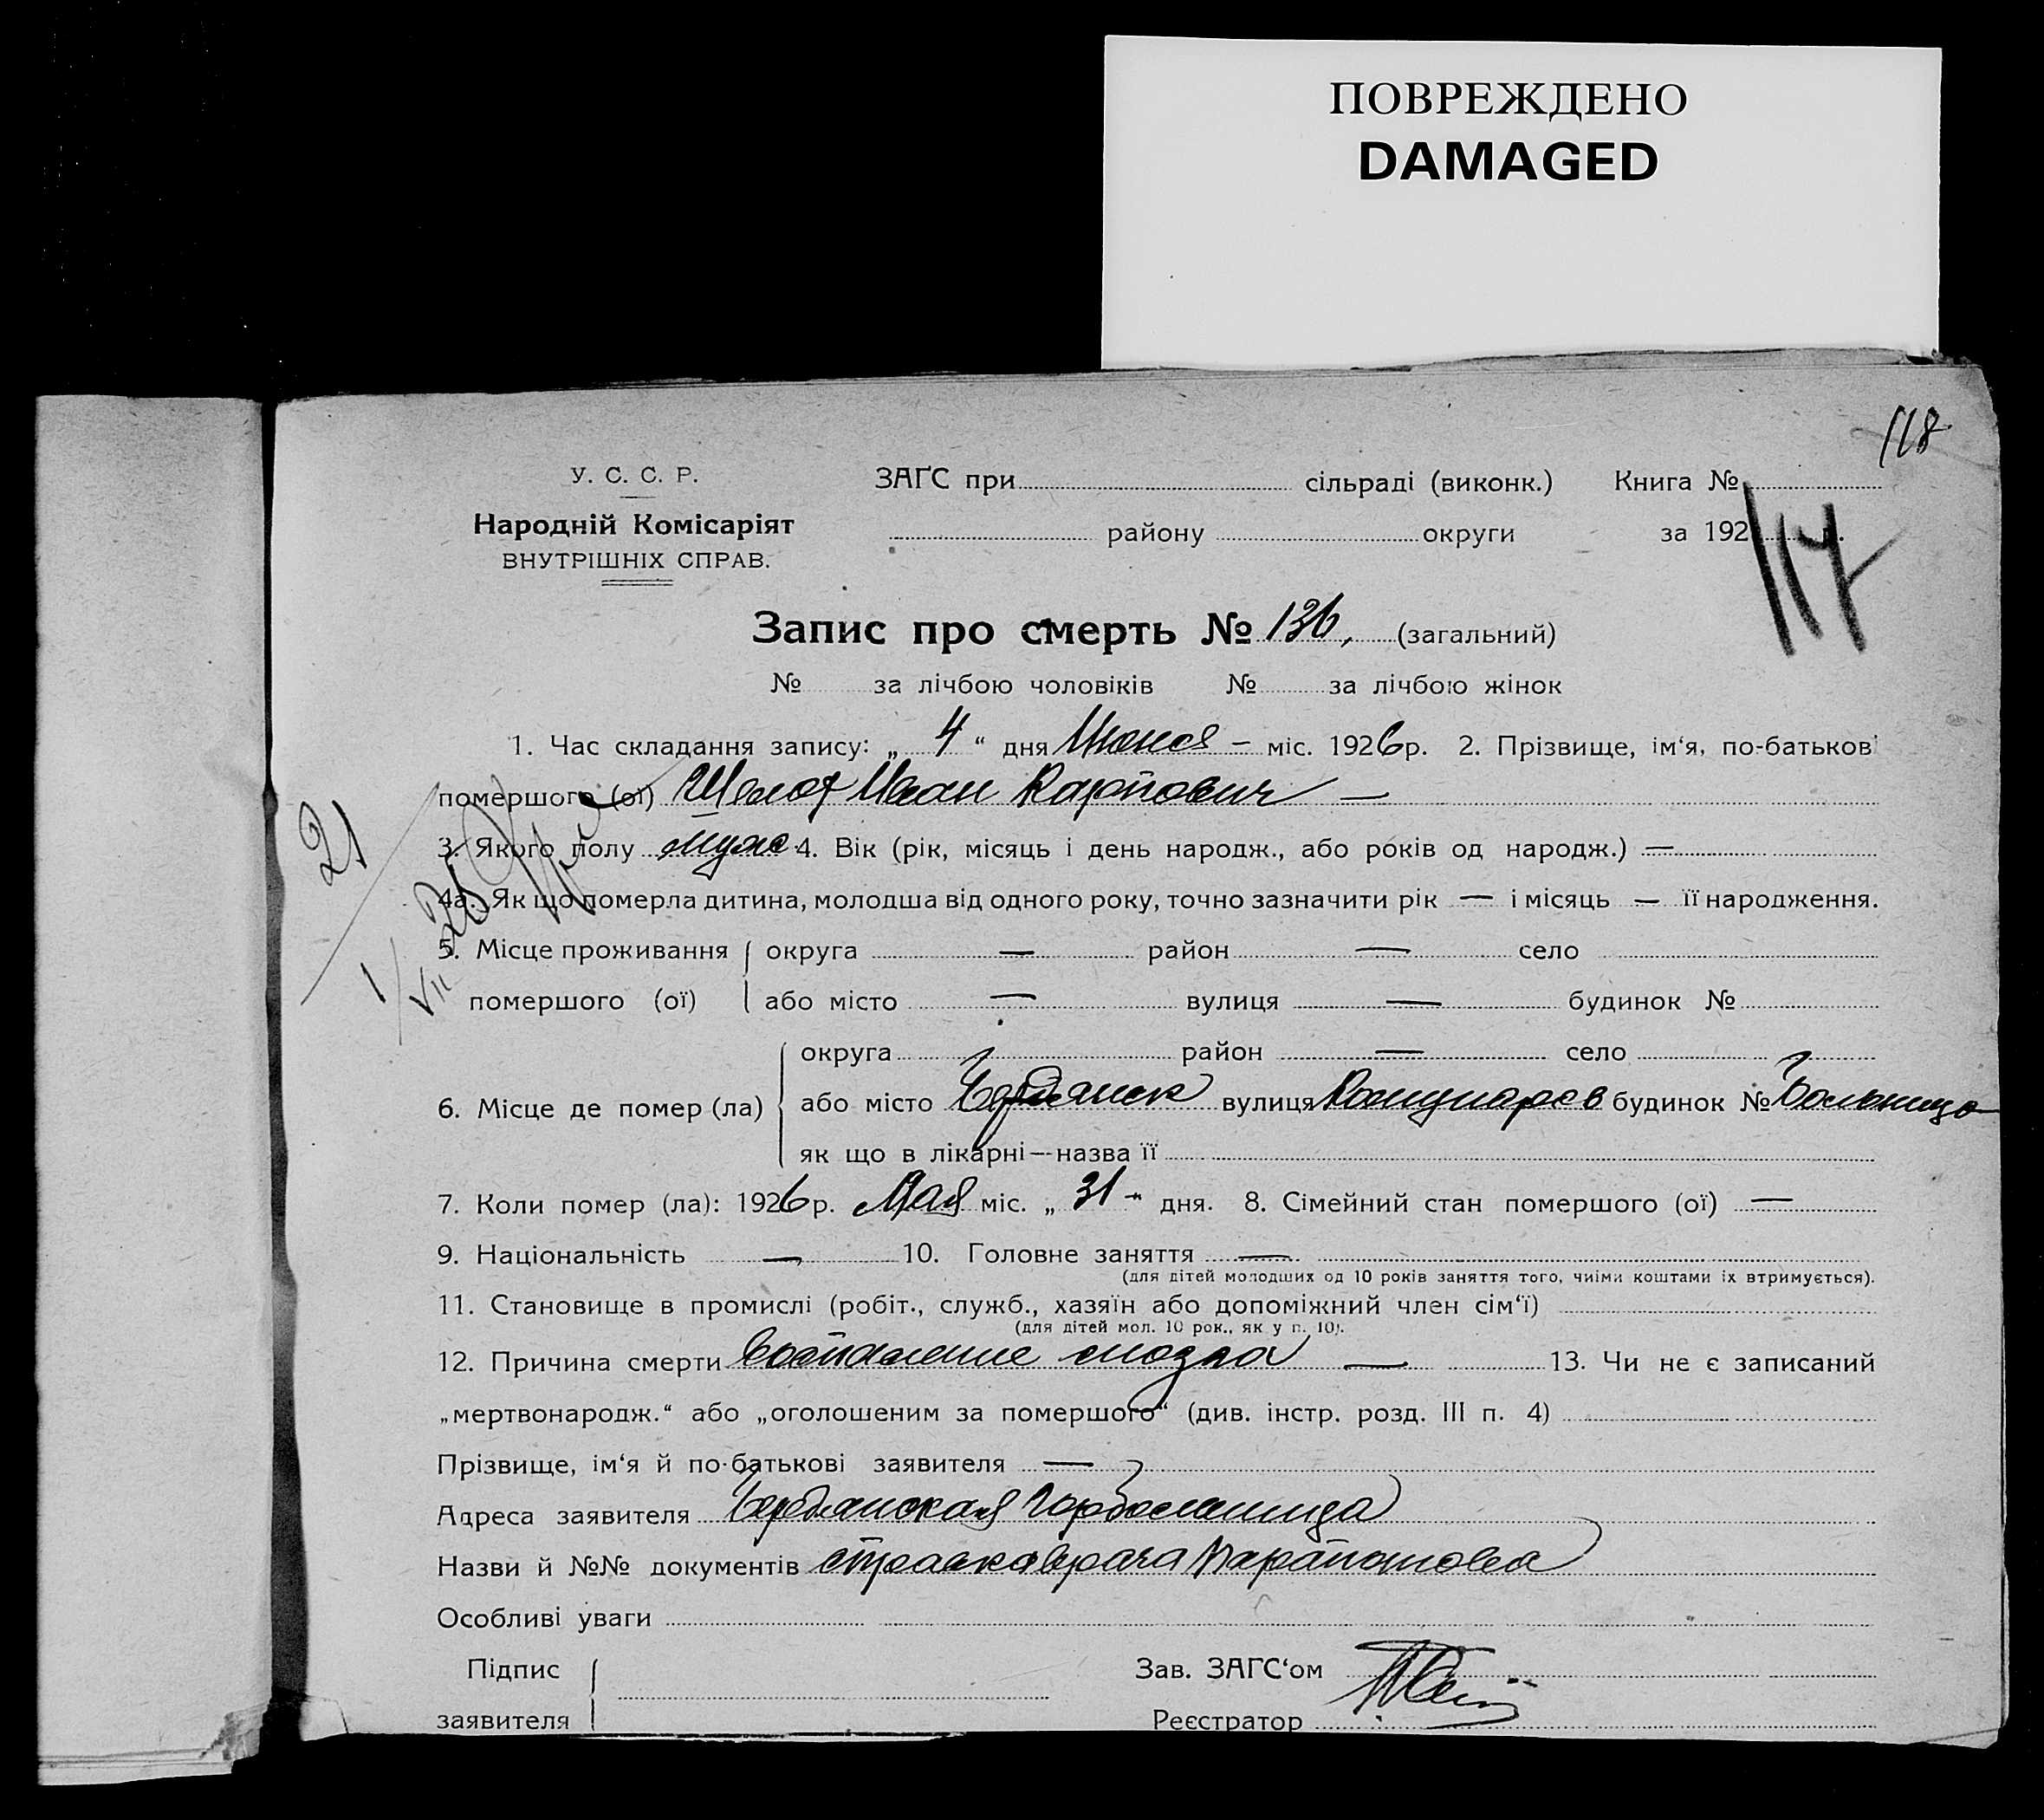 ПОВРЕЖДЕНО
DAMAGED
118
У. С. С. Р.
ЗАҐС при сільраді (виконк.) Книга №
Народній Комісаріят
району округи за 192 р.
117
ВНУТРІШНІХ СПРАВ.
Запис про смерть № 136, (загальний)
№ за лічбою чоловіків № за лічбою жінок
1. Час складання запису: „ 4 “ дня Июня – міс. 1926 р. 2. Прізвище, ім‘я, по-батькові
помершого (ої) Иван Карпович —
21
3. Якого полу муж 4. Вік (рік, місяць і день народж., або років од народж.) —
4а. Як що померла дитина, молодша від одного року, точно зазначити рік — і місяць — її народження.
5. Місце проживання округа — район — село
1/VII
помершого (ої) або місто — вулиця — будинок №
округа район — село
6. Місце де помер (ла) або місто Бердянск вулиця Комунаров будинок № Больница
як що в лікарні—назва її
7. Коли помер (ла): 1926 р. Мая міс. „ 31 “ дня. 8. Сімейний стан помершого (ої) —
9. Національність — 10. Головне заняття —
(для дітей молодших од 10 років заняття того, чиїми коштами їх втримується).
11. Становище в промислі (робіт., служб., хазяїн або допоміжний член сім‘ї)
(для дітей мол. 10 рок., як у п. 10).
12. Причина смерти воспаление мозга — 13. Чи не є записаний
„мертвонародж.“ або „оголошеним за помершого“ (див. інстр. розд. III п. 4)
Прізвище, ім‘я й по-батькові заявителя —
Адреса заявителя Бердянская Горбольница
Назви й №№ документів справка врача
Особливі уваги
Підпис Зав. ЗАГС‘ом
заявителя Реєстратор